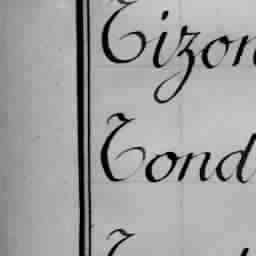 Tizon
Tond